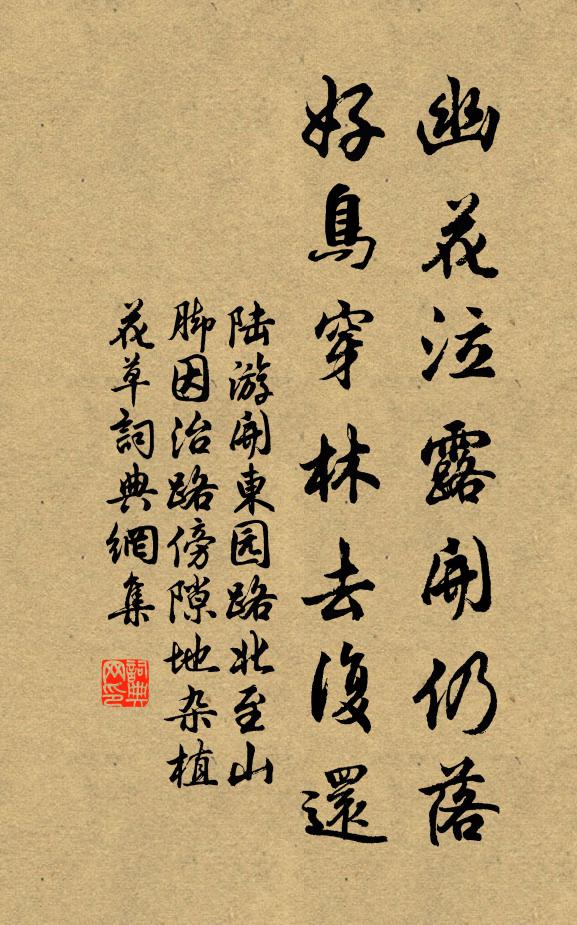 幽花泣露開仍落
好鳥穿林去復還
陆游開東园路北至山
脚因治路傍隙地杂植
花草詞典網集
詞典网印